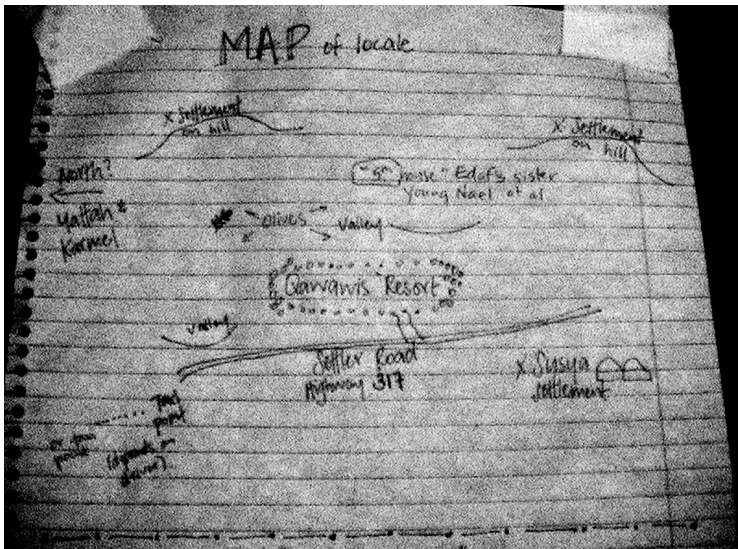 MAP of locale
X Settlement
on hill
X Settlement
on hill
North?
Yattah &
Karmel
"5th house" Edof's sister
Young Nael et al
olives
valley
Qawawis Resort
valley
Settler Road
Highway 317
X Susya
settlement
Taxi
point
or taxi
point
(depends on